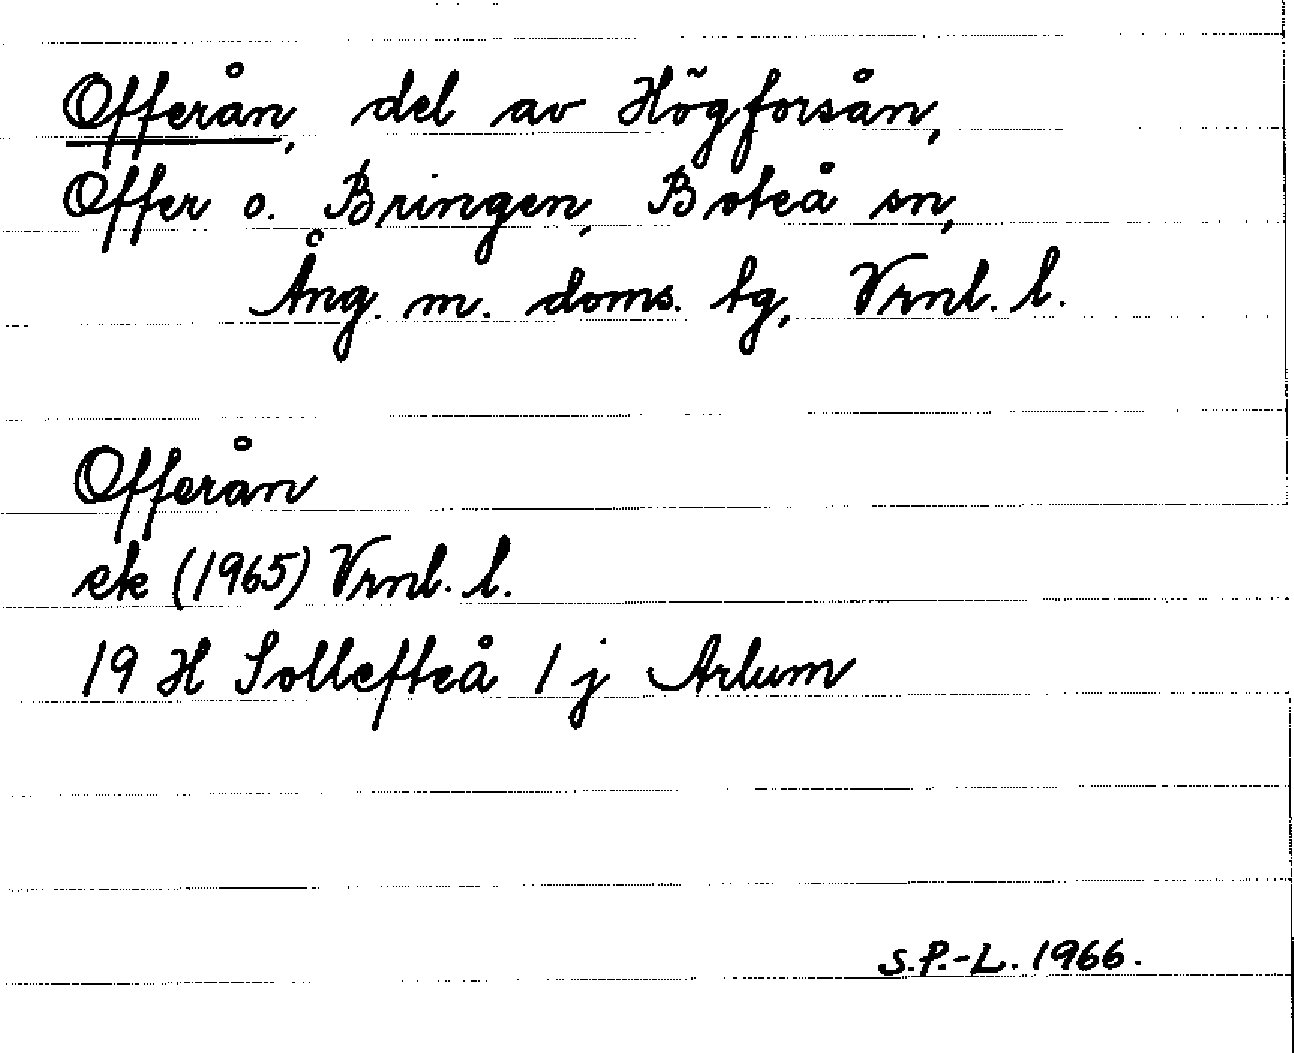 Offerån, del av Högforsån,
Offer o. Bringen, Boteå sn,
Ång. m. doms. tg, Vrnl. l.
Offerån
ek (1965) Vrnl. l.
19 H Sollefteå 1 j Arlum
S.P.-L. 1966.